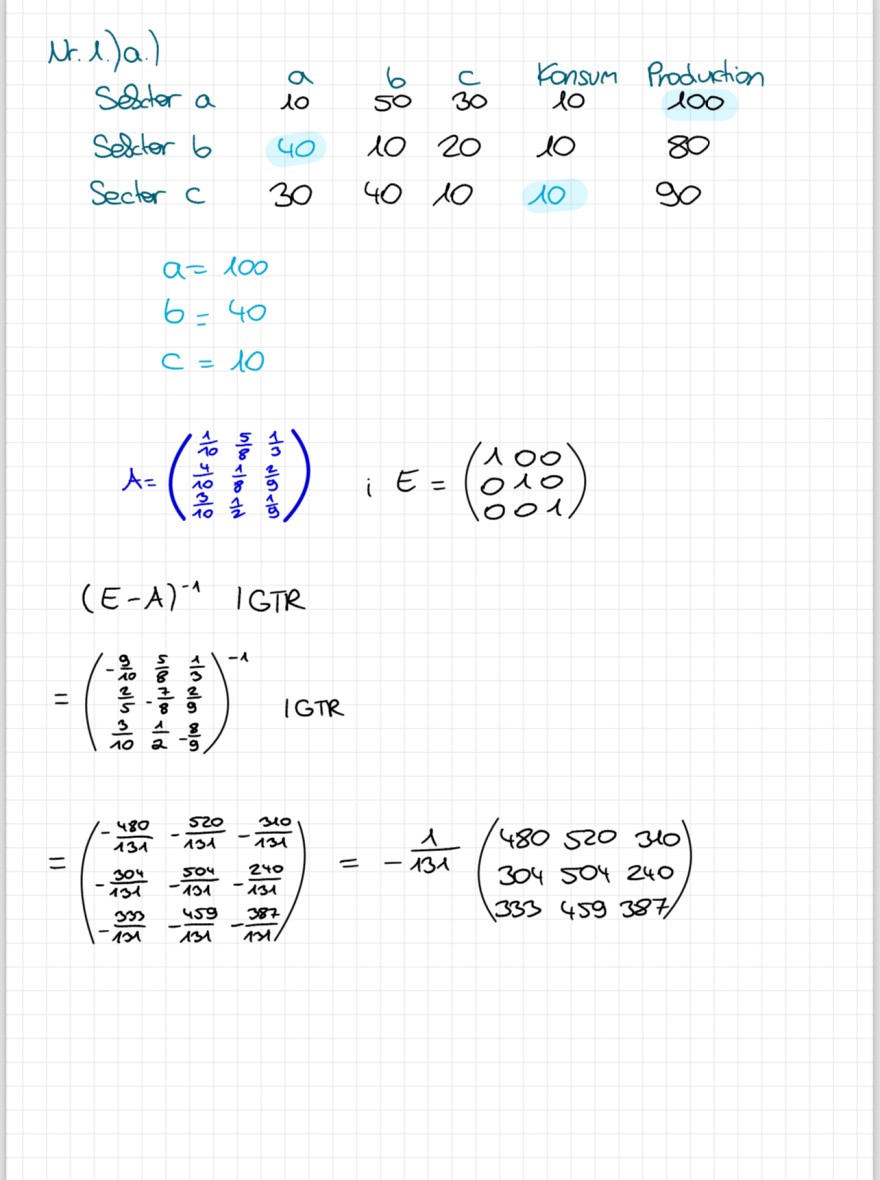 Nr. 1.)a.)
a b c Konsum Production
Sektor a 10 50 30 10 100
Sektor b 40 10 20 10 80
Secter c 30 40 10 10 90
a = 100
b = 40
c = 10
A = (1/10 5/8 1/3
4/10 1/8 2/9
3/10 1/2 1/9) ; E = (1 0 0
0 1 0
0 0 1)
(E-A)⁻¹ | GTR
= (-9/10 5/8 1/3
2/5 -7/8 2/9
3/10 1/2 -8/9)⁻¹ | GTR
= (-480/131 -520/131 -310/131
-304/131 -504/131 -240/131
-333/131 -459/131 -387/131) = -1/131 (480 520 310
304 504 240
333 459 387)